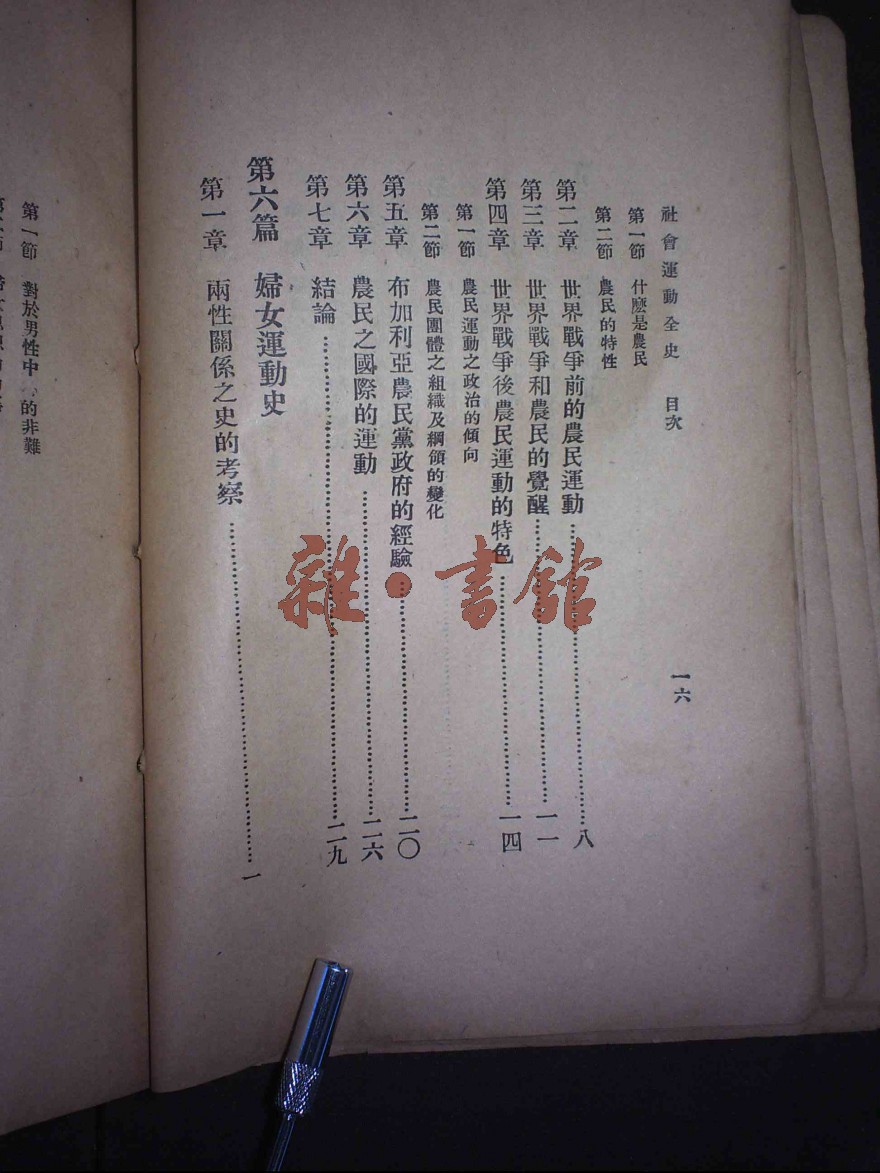 社會運動全史 目次 一六
第一節 什麽是農民
第二節 農民的特性
第二章 世界戰爭前的農民運動 八
第三章 世界戰爭和農民的覺醒 一一
第四章 世界戰爭後農民運動的特色 一四
第一節 農民運動之政治的傾向
第二節 農民團體之組織及綱領的變化
第五章 布加利亞農民黨政府的經驗 二〇
第六章 農民之國際的運動 二六
第七章 結論 二九
第六篇 婦女運動史
第一章 兩性關係之史的考察 一
第一節 對於男性中 的非難
雜·書館